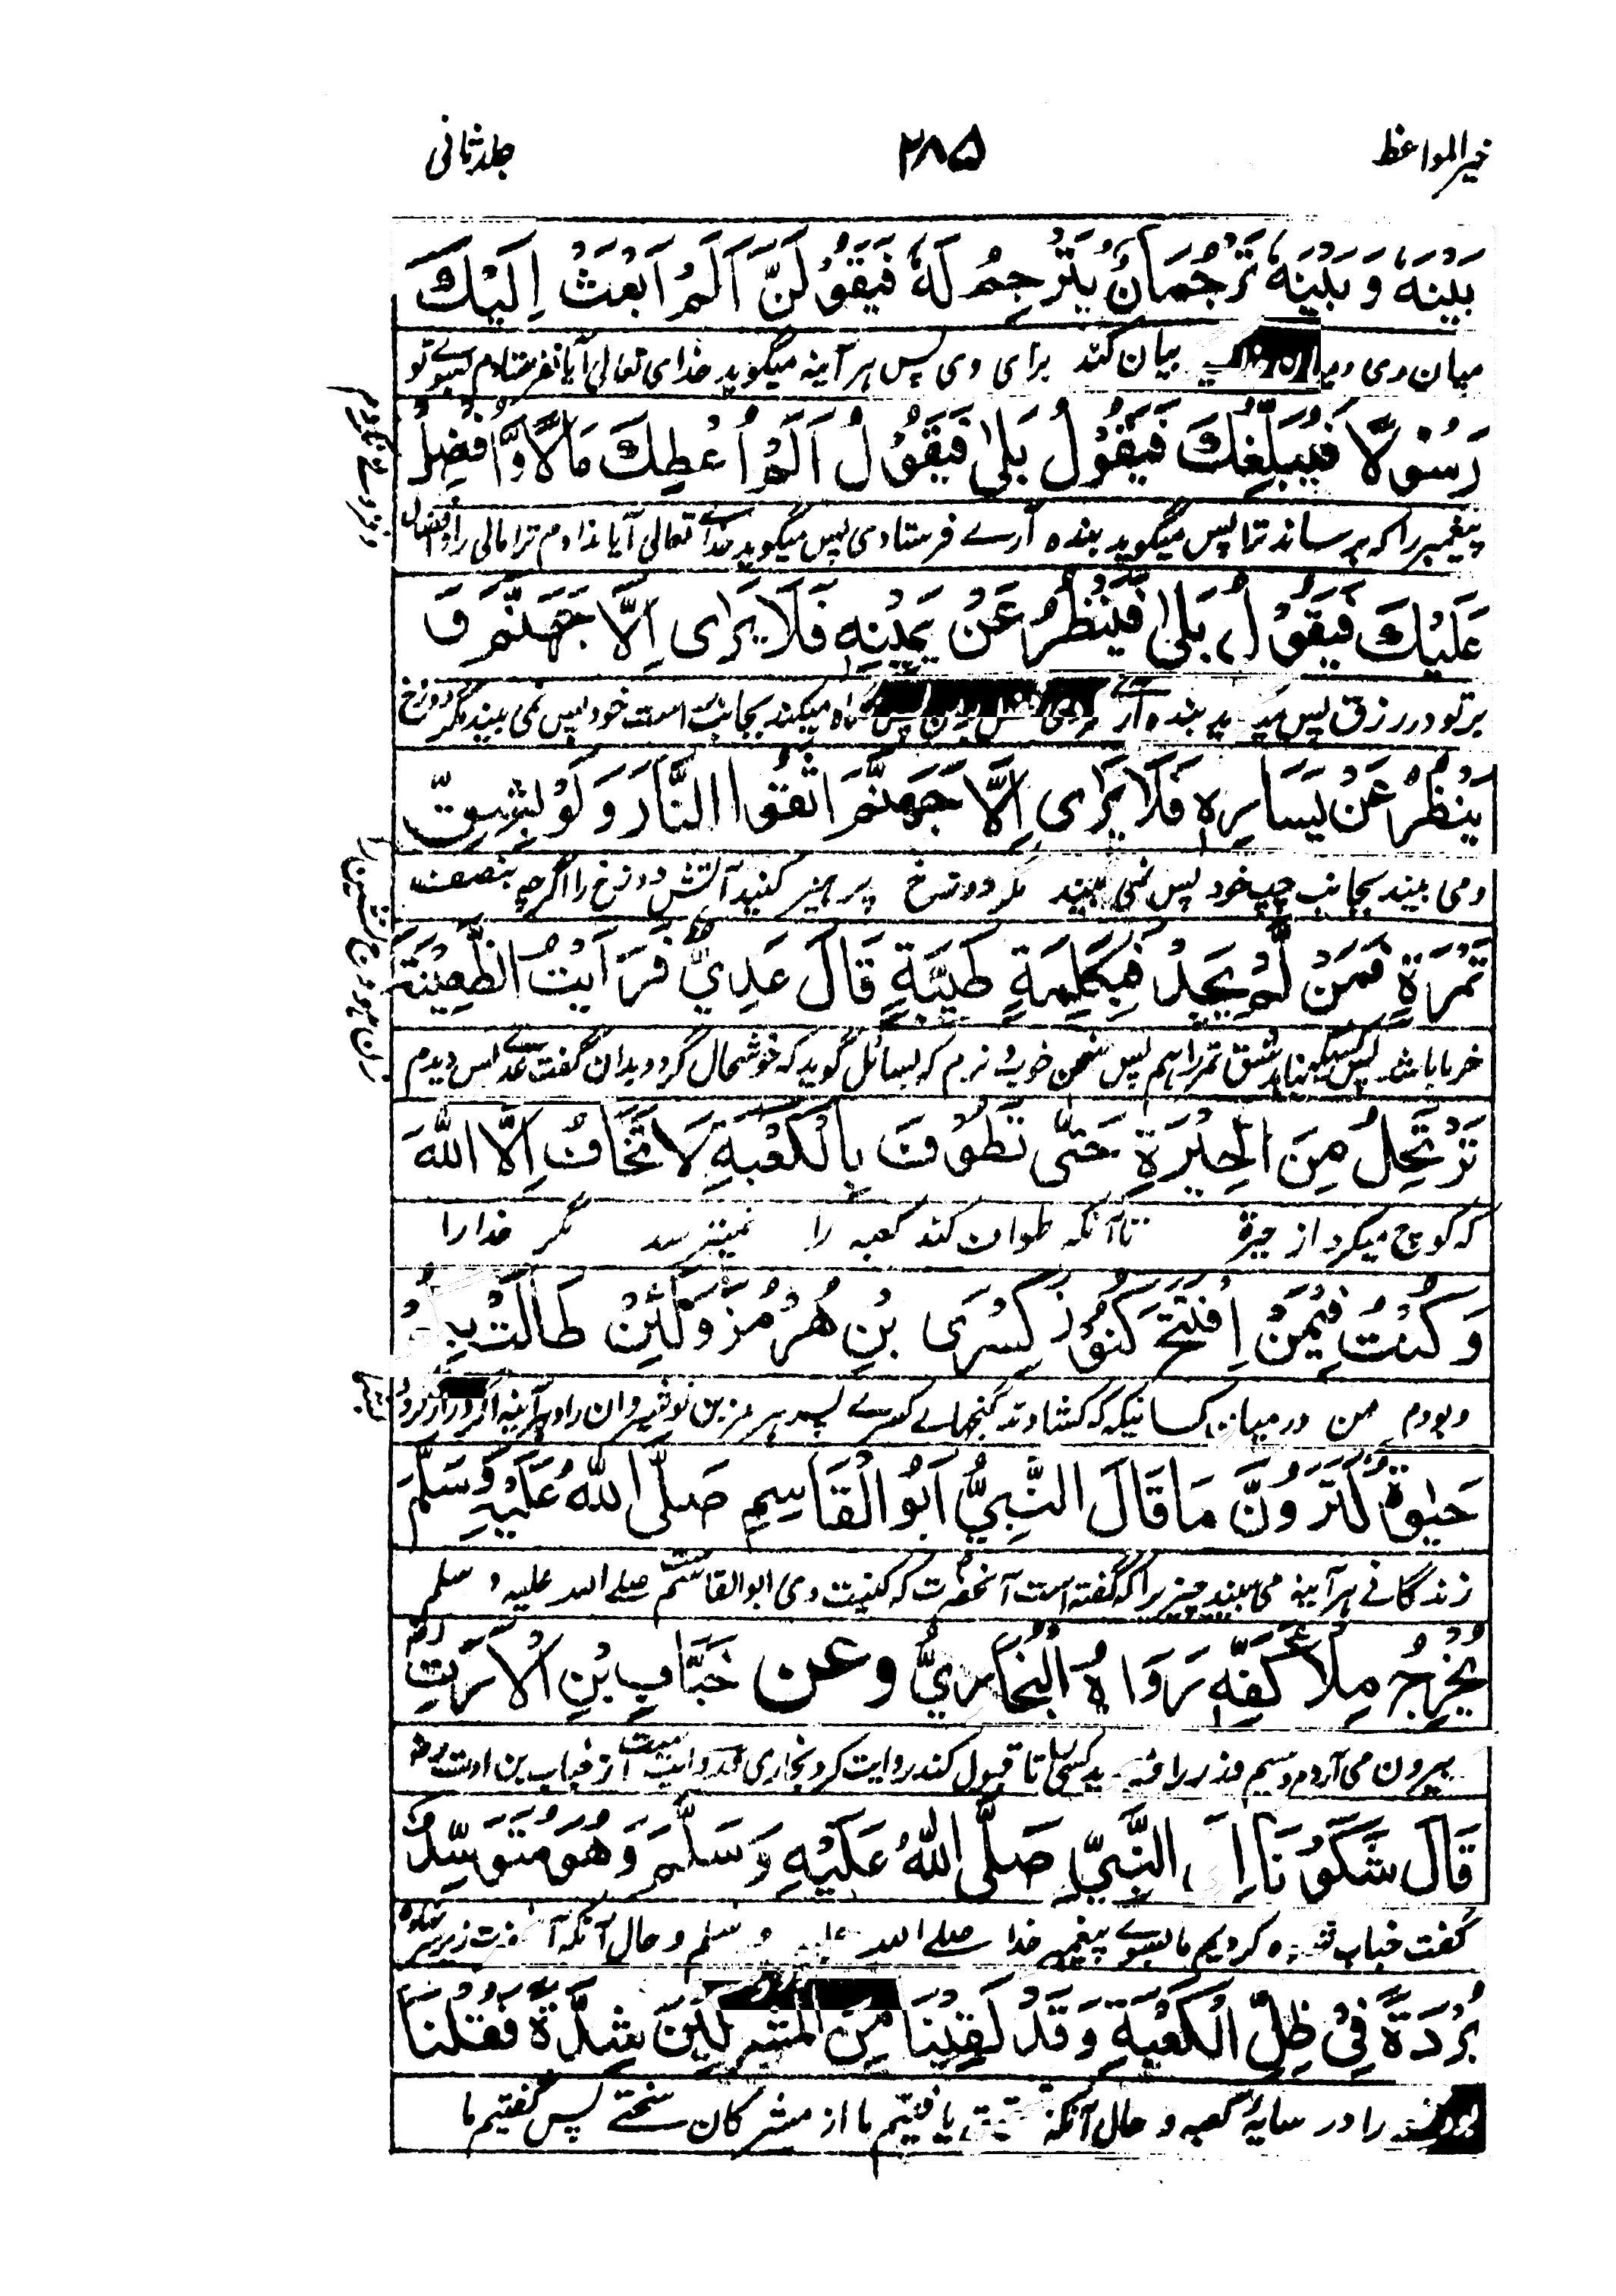 خیر المواعظ ۲۸۵ جلد ثانی
بَيْنَهٗ وَ بَيْنَهٗ تَرْجُمَانٌ يُتَرْجِمُ لَهٗ فَيَقُوْلَنَّ اَلَمْ اَبْعَثْ اِلَيْكَ
میان وی بیان کند برای وی پس هر آینه میگوید خدای تعالی آیا نفرستادم بسوے تو
رَسُوْلًا فَيُبَلِّغُكَ فَيَقُوْلُ بَلٰى فَيَقُوْلُ اَلَمْ اُعْطِكَ مَالًا وَّ اُفْضِلُ
پیغمبر را که برساند ترا پس میگوید بنده آرے فرستادی پس میگوید خداے تعالی آیا ندادم ترا مالی را و افضال
عَلَيْكَ فَيَقُوْلُ بَلٰى فَيَنْظُرُ عَنْ يَمِيْنِهٖ فَلَا يَرٰى اِلَّا جَهَنَّمَ وَ
بر تو در رزق پس بنده آرے میکند بجانب راست خود پس نمی بیند مگر دوزخ
يَنْظُرُ عَنْ يَسَارِهٖ فَلَا يَرٰى اِلَّا جَهَنَّمَ اتَّقُوا النَّارَ وَ لَوْ بِشِقِّ
و می بیند بجانب چپ خود پس نمی بیند مگر دوزخ پرهیز کنید آتش دوزخ را اگرچه بنصف
تَمْرَةٍ فَمَنْ لَّمْ يَجِدْ فَبِكَلِمَةٍ طَيِّبَةٍ قَالَ عَدِيٌّ فَرَاَيْتُ الظَّعِيْنَةَ
خرما باشد پس کسیکه نیابد شق تمر را هم پس سخن خوب و نرم که بسائل گوید که خوشحال گردد بدان گفت عدے پس دیدم
تَرْتَحِلُ مِنَ الْحِيْرَةِ حَتّٰى تَطُوْفَ بِالْكَعْبَةِ لَا تَخَافُ اِلَّا اللّٰهَ
که کوچ میکرد از حیرة تا آنکه طواف کند کعبه را نمیترسد مگر خدا را
وَ كُنْتُ فِيْمَنْ اِفْتَتَحَ كُنُوْزَ كِسْرٰى بْنِ هُرْمُزَ وَ لَئِنْ طَالَتْ بِكُمْ
و بودم من در میان کسانیکه کشادند گنجهاے کسرے پسر هرمز بن نوشیروان را و هرآینه اگر دراز گردد
حَيٰوةٌ لَتَرَوُنَّ مَا قَالَ النَّبِيُّ اَبُو الْقَاسِمِ صَلَّى اللّٰهُ عَلَيْهِ وَ سَلَّمَ
زندگانے هر آینه می بیند چیزیرا که گفته است آنحضرت که کنیت وی ابوالقاسم ست صلے الله علیه و سلم
يُخْرِجُ مِلْأَ كَفِّهٖ رَوَاهُ الْبُخَارِيُّ وَ عَنْ خَبَّابِ بْنِ الْاَرَتِّ رض
بیرون می آرد تا قبول کند روایت کرد بخاری و روایت ست از خباب بن ارت رض
قَالَ شَكَوْنَا اِلَى النَّبِيِّ صَلَّى اللّٰهُ عَلَيْهِ وَ سَلَّمَ وَ هُوَ مُتَوَسِّدٌ
گفت خباب شکوه کردیم ما بسوے پیغمبر خدا صلے الله علیه و سلم و حال آنکه آنحضرت زیر سر
بُرْدَةً فِيْ ظِلِّ الْكَعْبَةِ وَ قَدْ لَقِيْنَا مِنَ الْمُشْرِكِيْنَ شِدَّةً فَقُلْنَا
را در سایۂ کعبه و حال آنکه یافتیم ما از مشرکان سختے پس گفتیم ما